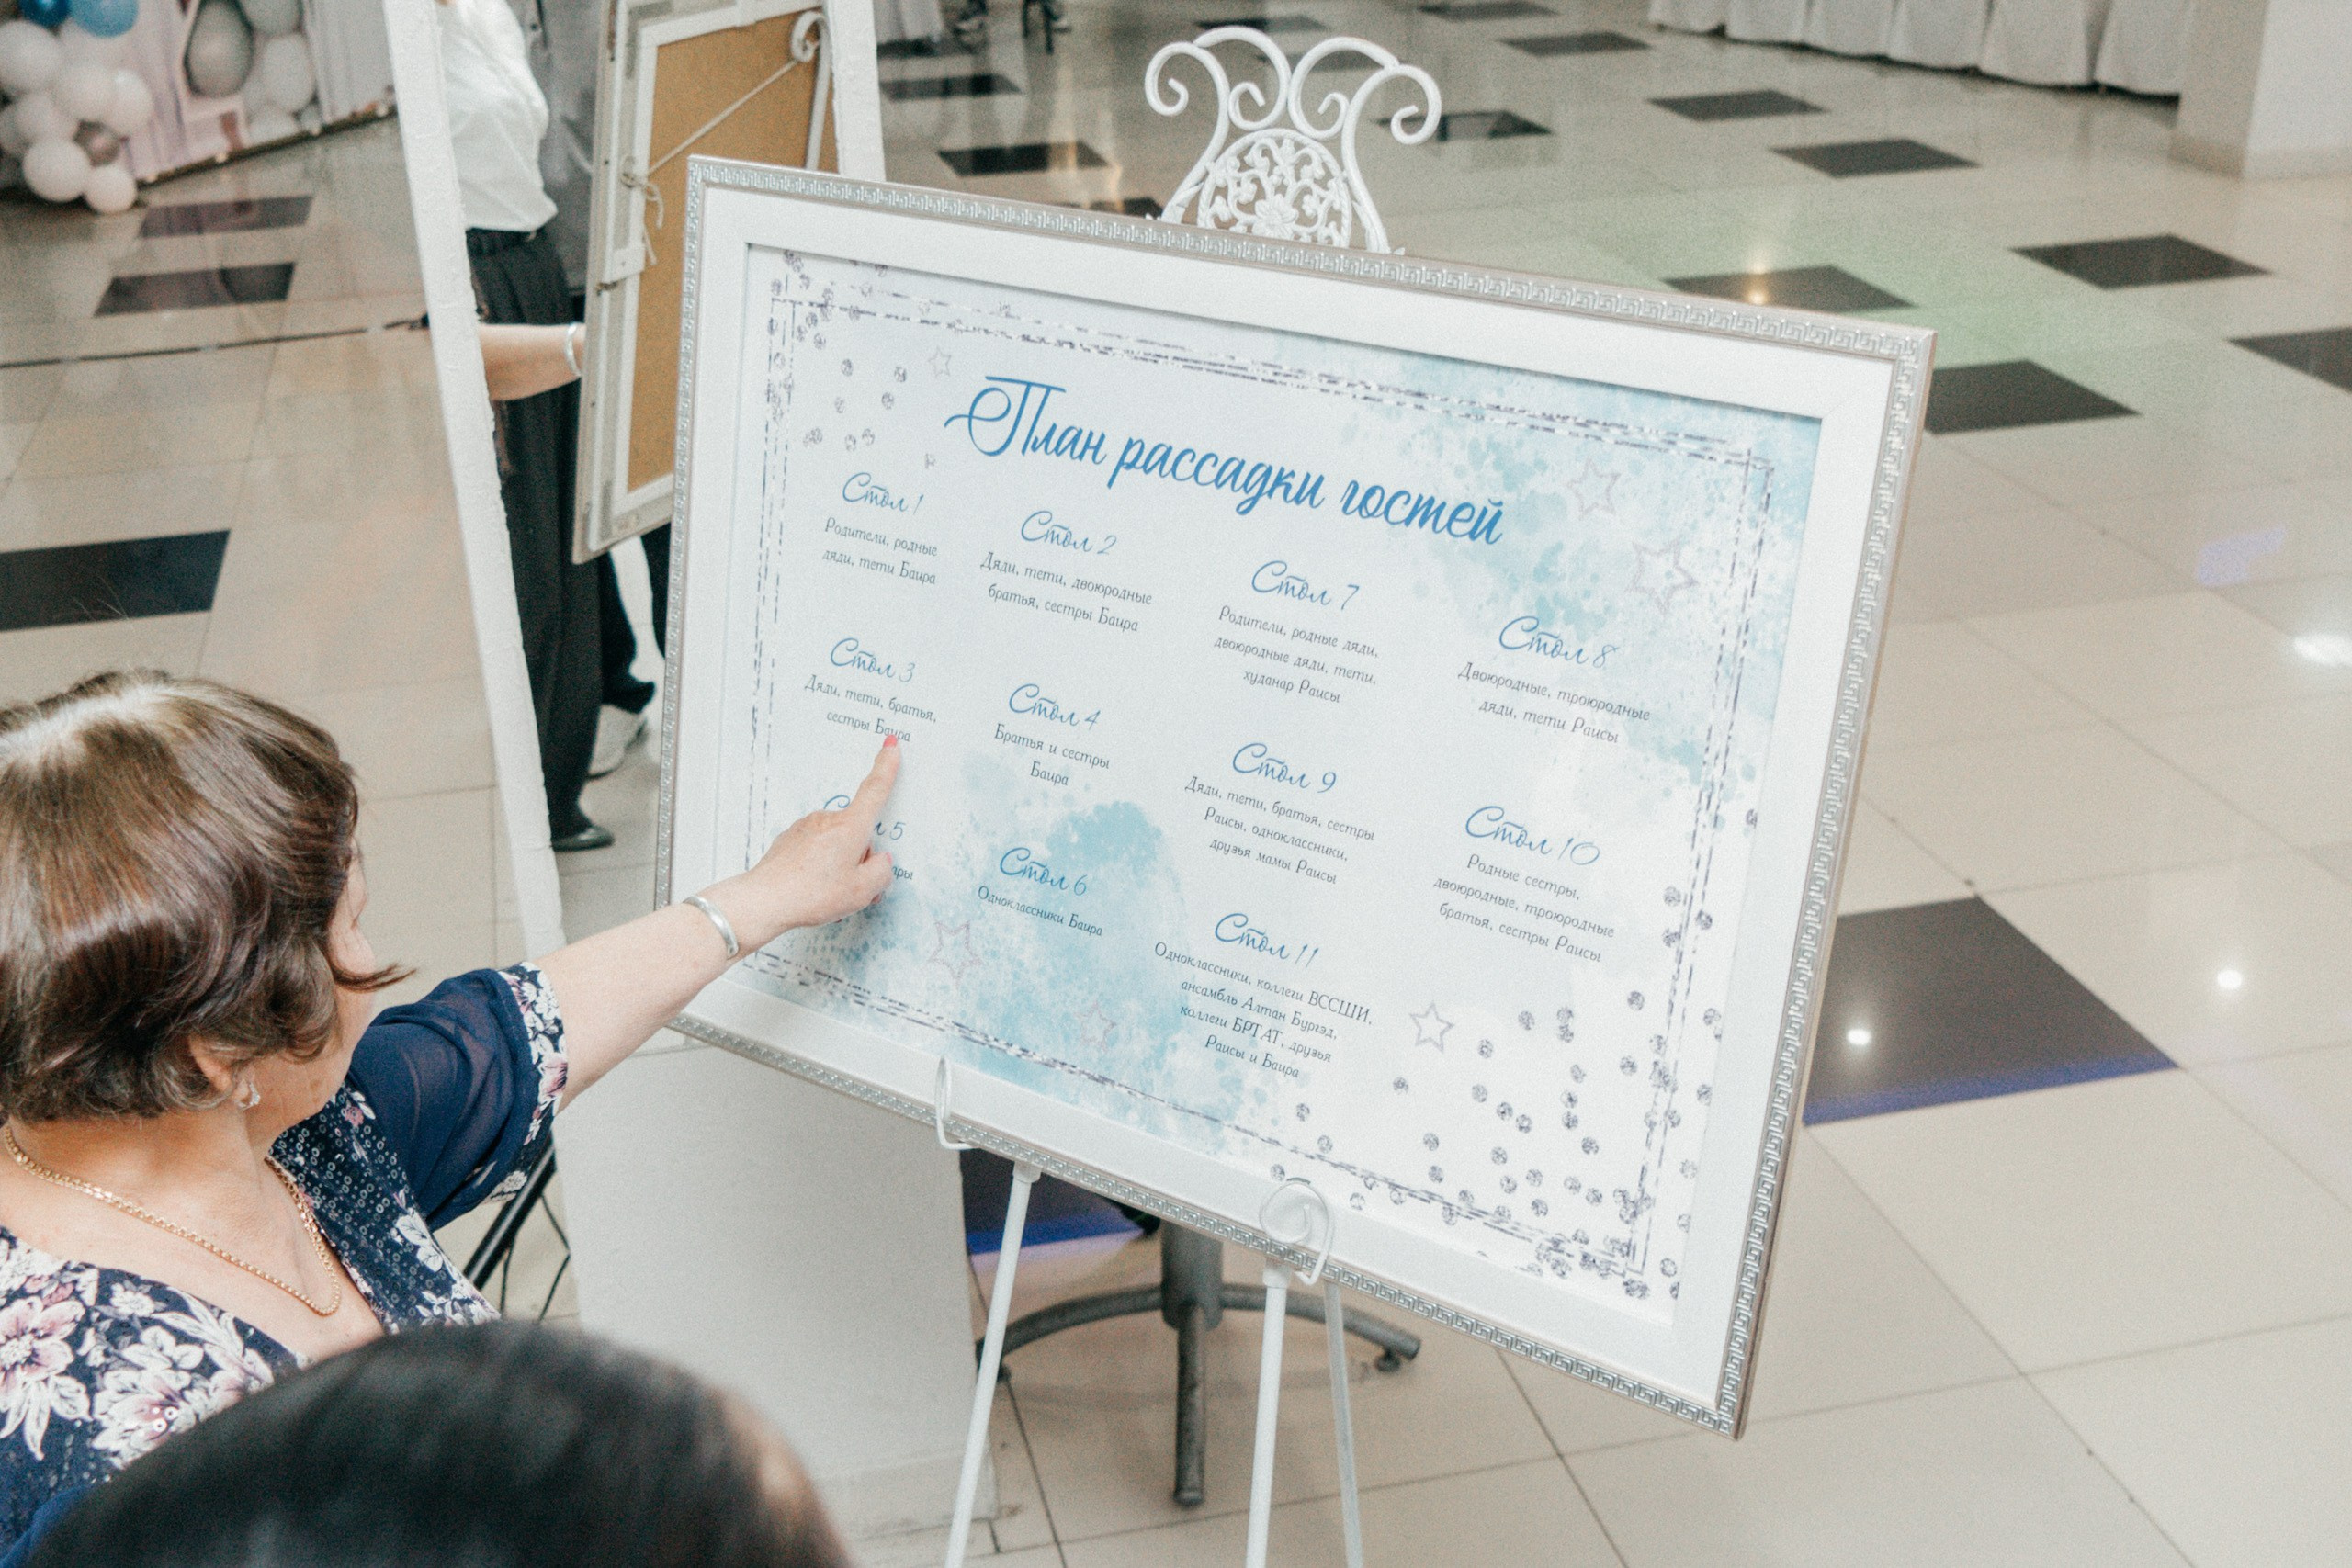 План рассадки гостей
Стол 1
Родители, родные
дяди, тети Баира
Стол 2
Дяди, тети, двоюродные
братья, сестры Баира
Стол 3
Дяди, тети, братья,
сестры Баира
Стол 4
Братья и сестры
Баира
5
Стол 6
Одноклассники Баира
Стол 7
Родители, родные дяди,
двоюродные дяди, тети,
худанар Раисы
Стол 8
Двоюродные, троюродные
дяди, тети Раисы
Стол 9
Дяди, тети, братья, сестры
Раисы, одноклассники,
друзья мамы Раисы
Стол 10
Родные сестры,
двоюродные, троюродные
братья, сестры Раисы
Стол 11
Одноклассники, коллеги ВССШИ,
ансамбль Алтан Бургэд,
коллеги БРТАТ, друзья
Раисы и Баира